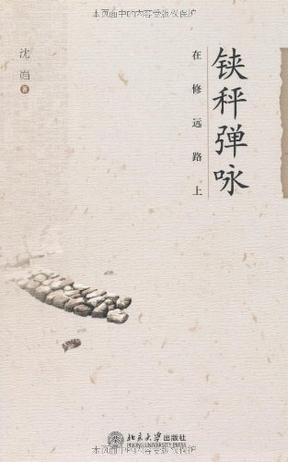 本页面中的内容受版权保护
铗秤弹咏
在修远路上
沈
著
北京大学出版社
本页面中的内容受版权保护